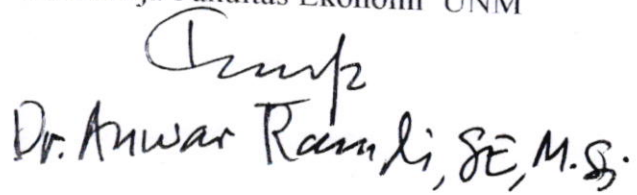 Fakultas Ekonomi UNM
Dr. Anwar Ramli, SE, M.Si.